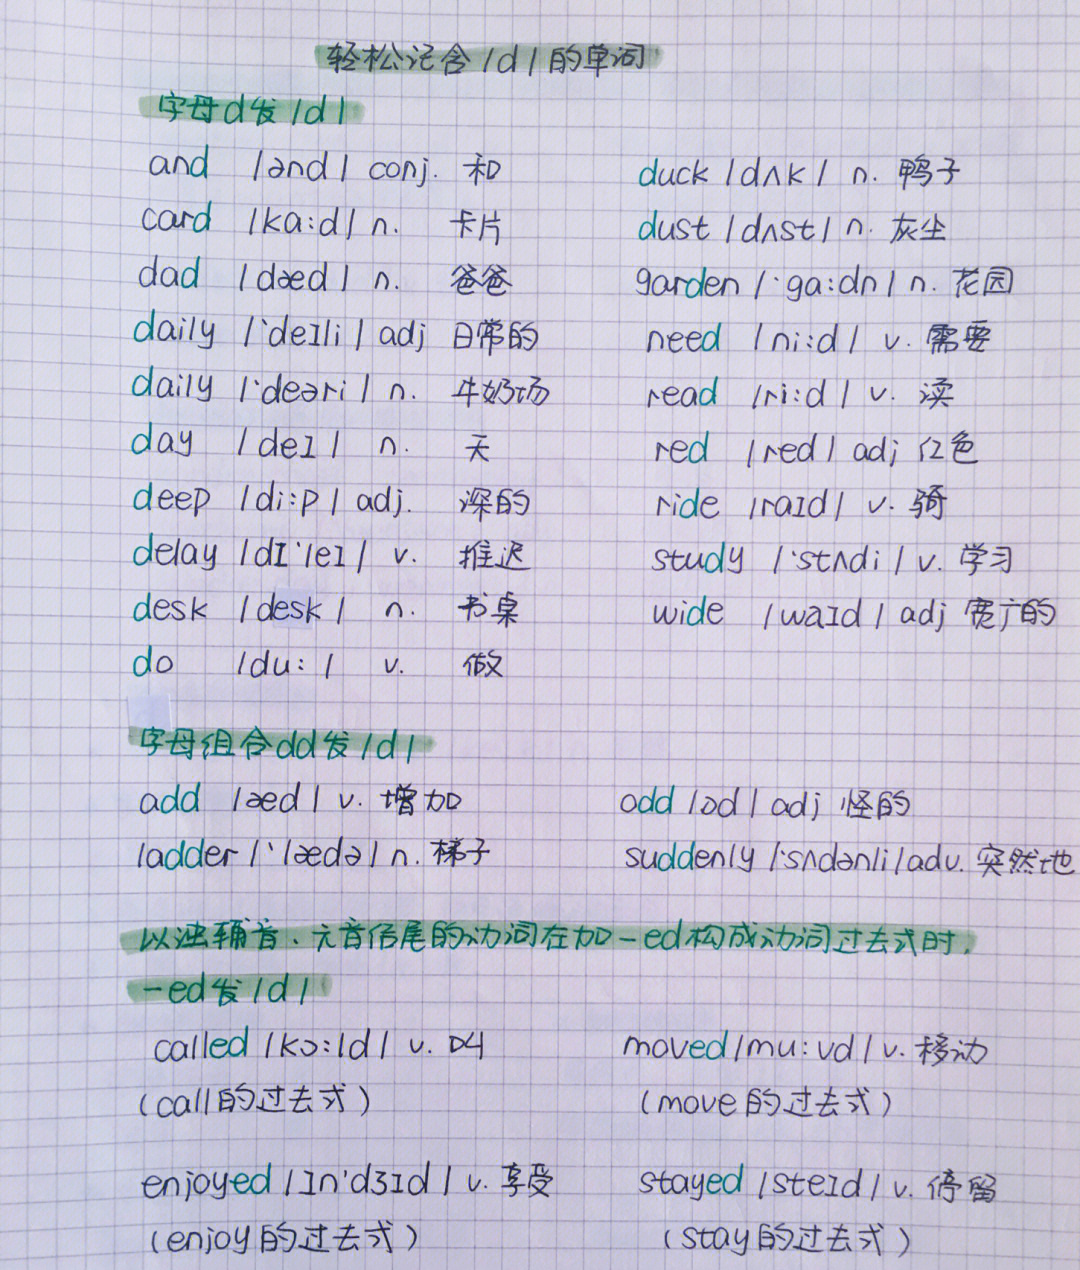 轻松记含/d/的单词
字母d发/d/
and /ənd/ conj. 和
duck /dʌk/ n. 鸭子
card /kɑ:d/ n. 卡片
dust /dʌst/ n. 灰尘
dad /dæd/ n. 爸爸
garden /'gɑ:dn/ n. 花园
daily /'deɪli/ adj 日常的
need /ni:d/ v. 需要
daily /'deəri/ n. 牛奶场
read /ri:d/ v. 读
day /deɪ/ n. 天
red /red/ adj 红色
deep /di:p/ adj. 深的
ride /raɪd/ v. 骑
delay /dɪ'leɪ/ v. 推迟
study /'stʌdi/ v. 学习
desk /desk/ n. 书桌
wide /waɪd/ adj 宽广的
do /du:/ v. 做
字母组合dd发/d/
add /æd/ v. 增加
odd /ɔd/ adj 怪的
ladder /'lædə/ n. 梯子
suddenly /'sʌdənli/adv. 突然地
以浊辅音、元音结尾的动词在加-ed构成动词过去式时,
-ed发/d/
called /kɔ:ld/ v. 叫
moved/mu:vd/ v. 移动
(call的过去式)
(move的过去式)
enjoyed /ɪn'dʒɪd/ v. 享受
stayed /steɪd/ v. 停留
(enjoy的过去式)
(stay的过去式)